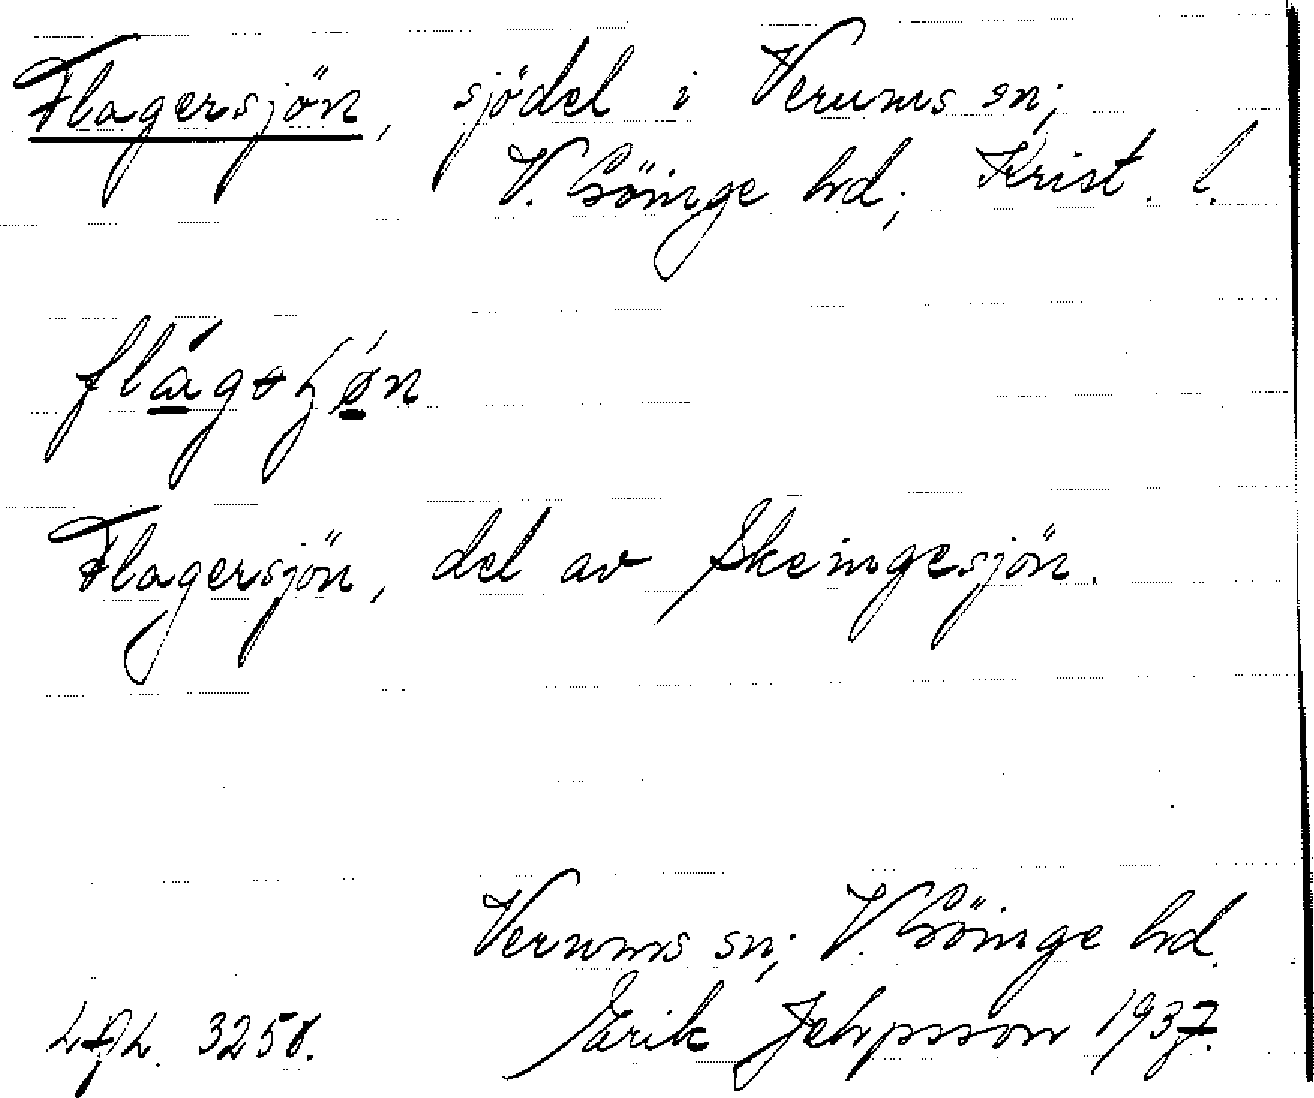 Flagersjön, sjödel i Verums sn;
V. Göinge hd; Krist. l.
Flagersjön, del av Skeingesjön.
Verums sn; V. Göinge hd.
Erik Jeppsson 1937.
3258.